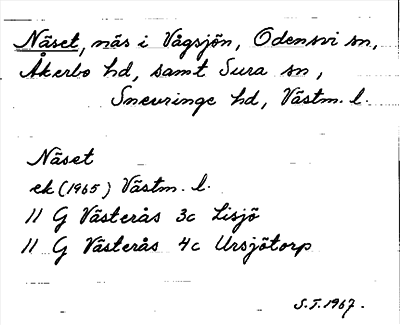 Näset, näs i Vågsjön, Odensvi sn,
Åkerbo hd, samt Sura sn,
Snevringe hd, Västm. l.
Näset
ek (1965) Västm. l.
11 G Västerås 3c Lisjö
11 G Västerås 4c Ursjötorp
S.T. 1967.